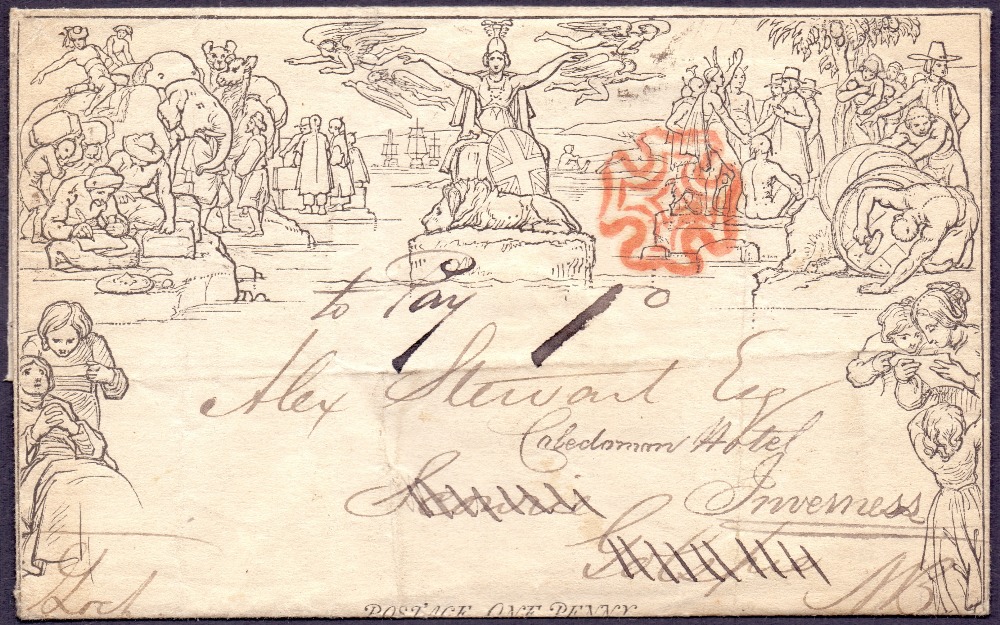 to Pay 1d
Alex Stewart Esq
Caledonian Hotel
Inverness
NB
Loch
POSTAGE ONE PENNY